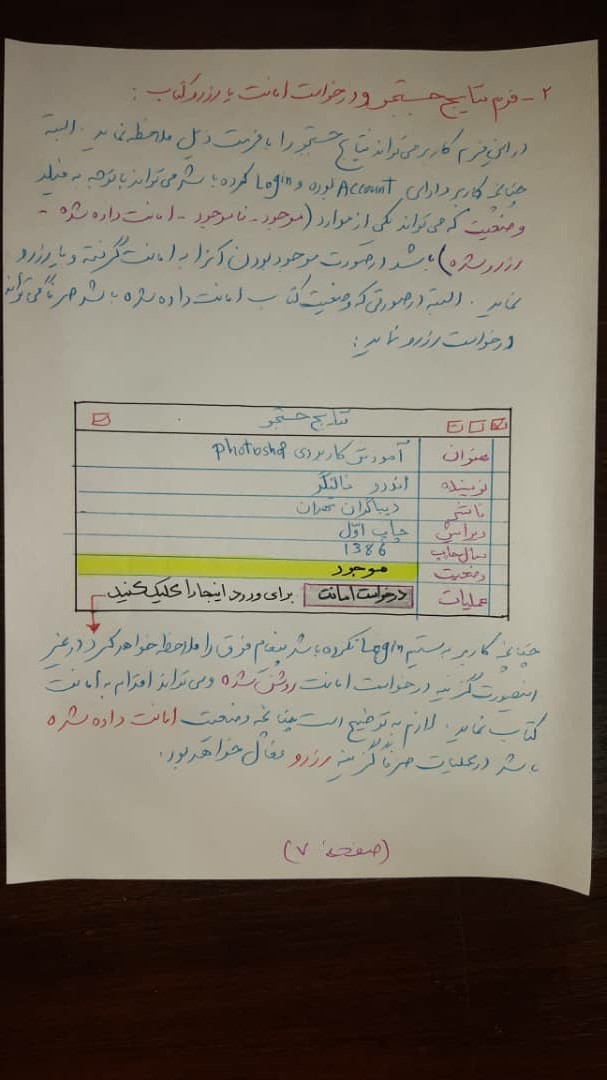 ۲- فرم نتایج جستجو و درخواست امانت یا رزرو کتاب :
در این فرم کاربر می‌تواند نتایج جستجو را با فرمت ذیل ملاحظه نماید . البته
چنانچه کاربر دارای Account بوده و Login کرده باشد می‌تواند با توجه به فیلد
وضعیت که می‌تواند یکی از موارد (موجود - ناموجود - امانت داده شده -
رزرو شده) باشد در صورت موجود بودن آنرا به امانت گرفته و یا رزرو
نماید . البته در صورتی که وضعیت کتاب امانت داده شده باشد صرفاً می‌تواند
درخواست رزرو نماید :
نتایج جستجو
عنوان آموزش کاربردی photoshop
نویسنده اندرو فالنگر
ناشر دیباگران تهران
ویرایش چاپ اول
سال چاپ 1386
وضعیت موجود
عملیات درخواست امانت برای ورود اینجا را کلیک کنید
چنانچه کاربر به سیستم Login نکرده باشد پیغام فوق را ملاحظه خواهد کرد در غیر
اینصورت گزینه درخواست امانت روشن شده و می‌تواند اقدام به امانت
کتاب نماید . لازم به توضیح است چنانچه وضعیت امانت داده شده
باشد در عملیات صرفاً گزینه رزرو فعال خواهد بود .
(صفحه ۷)